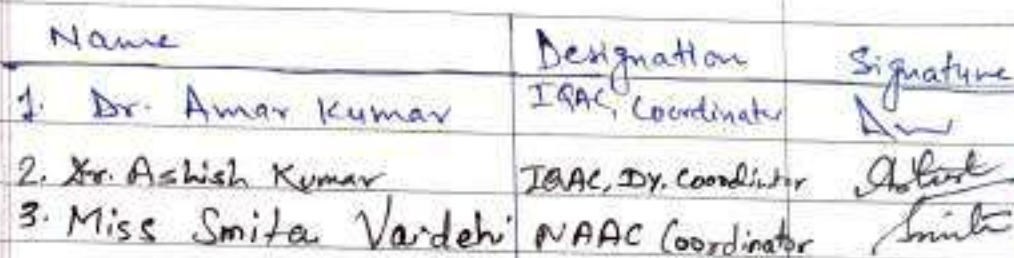 Name Designation Signature
1. Dr. Amar Kumar IQAC, Coordinator
2. Dr. Ashish Kumar IQAC, Dy. Coordinator Ashish
3. Miss Smita Vaidehi NAAC Coordinator Smita